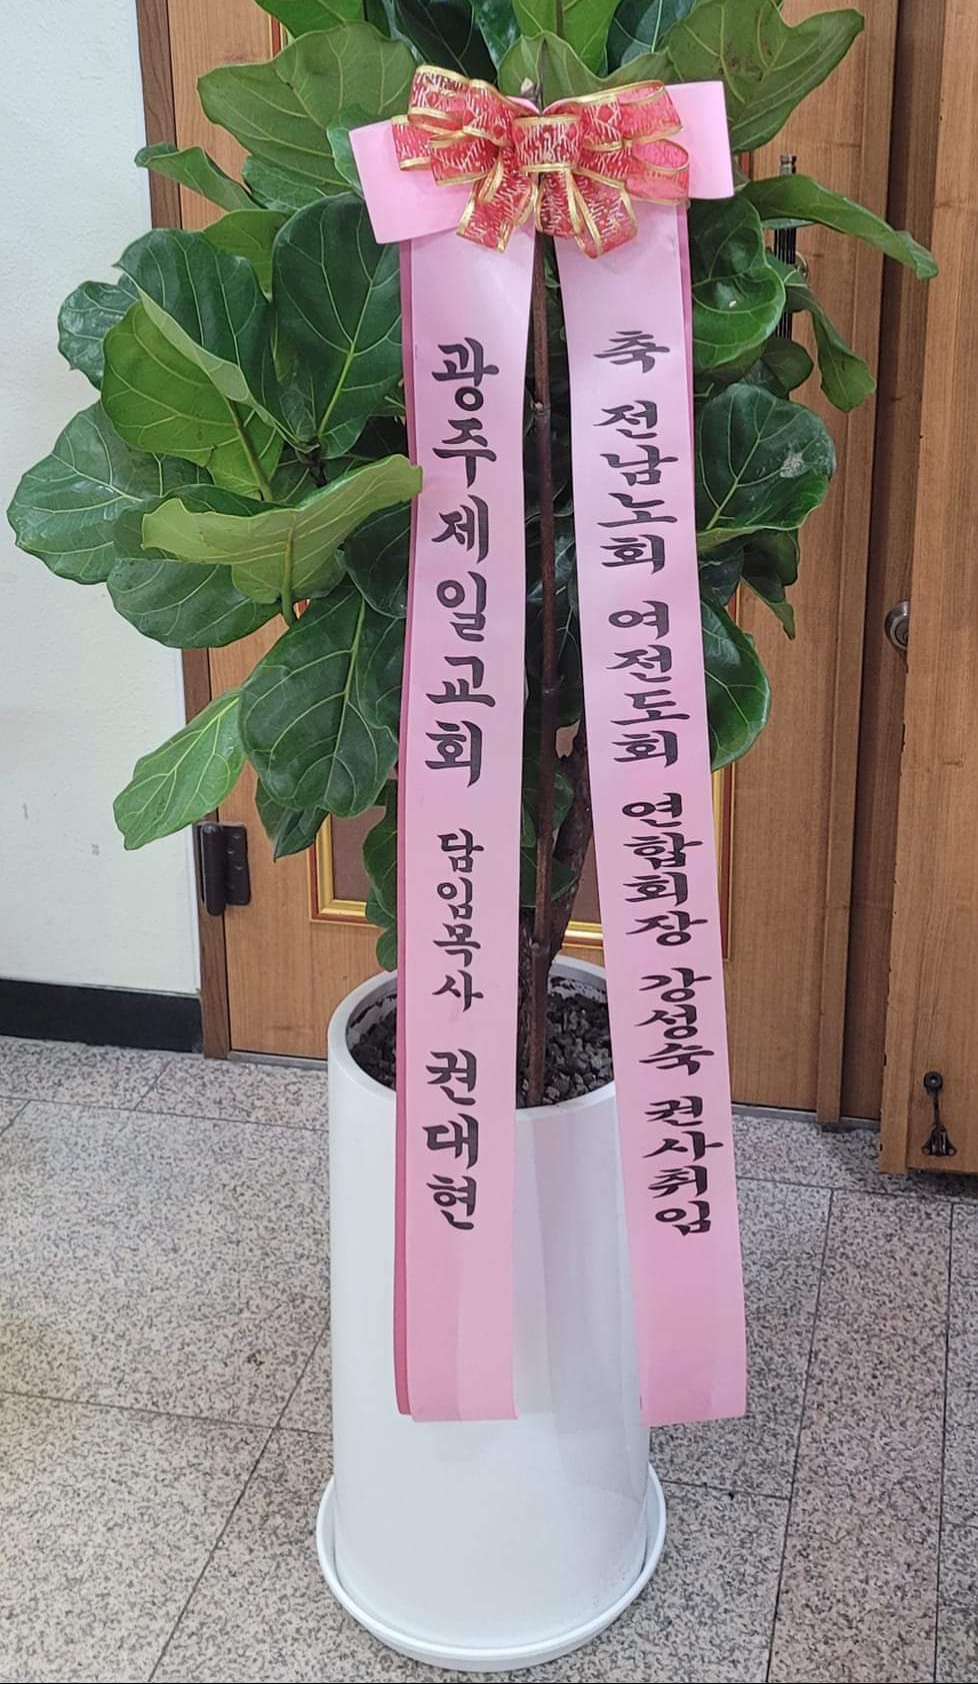 축 전남노회 여전도회 연합회장 강성숙 권사취임
광주제일교회 담임목사 권대현